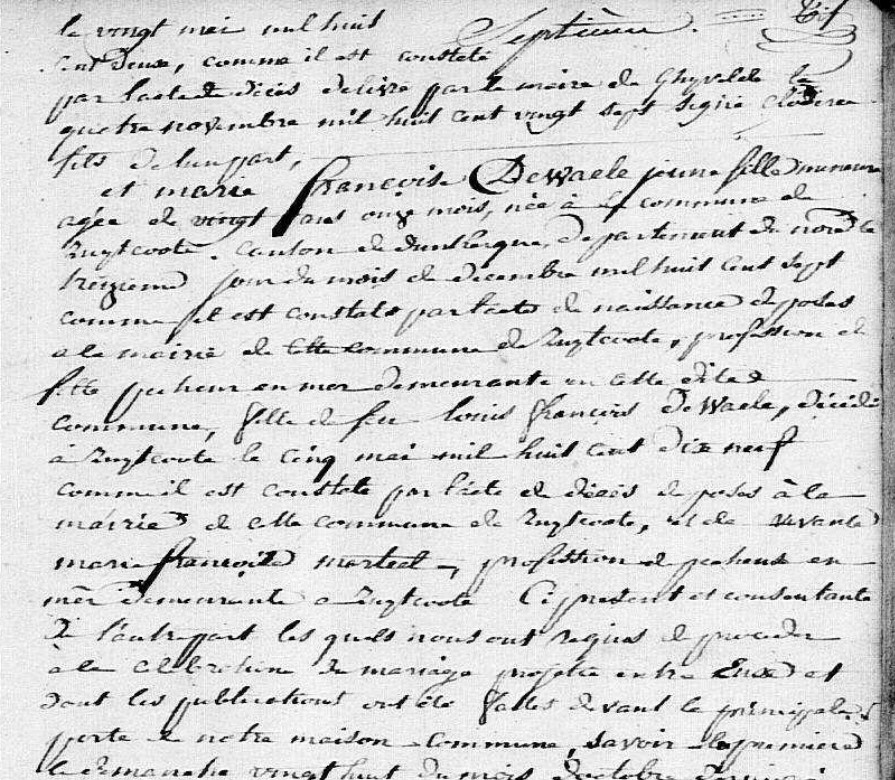 Septième
le vingt mai mil huit
cent deux, comme il est constaté
par l'acte de décès délivré par le maire de Ghyvelde le
quatre novembre mil huit cent vingt sept signé
fils de l'une part,
et marie françoise DeWaele jeune fille mineure
agée de vingt ans onze mois, née à la commune de
Zuytcoote, canton de dunkerque, departement du nord le
treizieme jour du mois de decembre mil huit cent sept
comme il est constaté par l'acte de naissance déposés
a la mairie de cette commune de Zuytcoote, profession de
pecheur en mer demeurante en cette dite
commune, fille de feu louis françois DeWaele, décédé
à Zuytcoote le cinq mai mil huit cent dix neuf
comme il est constaté par l'acte de décès déposés à la
mairie de cette commune de Zuytcoote, et de vivante
marie françoise marteel, profession de pecheuse en
mer demeurante a Zuytcoote Ci présent et consentante
De l'autre part les quels nous ont requis de proceder
à la celebration du mariage projetée entre Eux et
dont les publications ont été faites devant la principale
porte de notre maison commune, savoir la premiere
le dimanche vingt huit du mois d'octobre